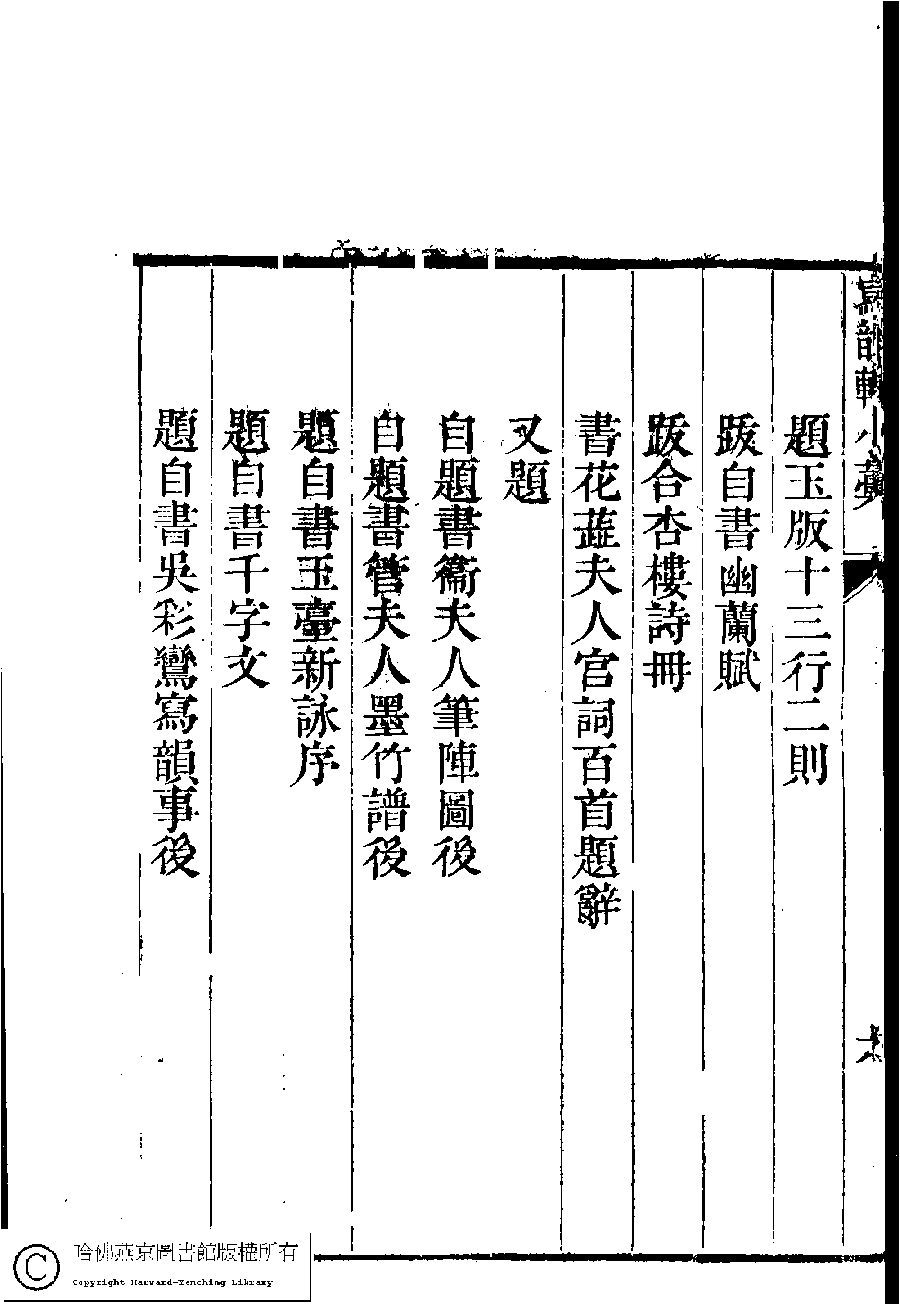 寫韻軒小藁
題玉版十三行二則
跋自書幽蘭賦
跋合杏樓詩冊
書花蕋夫人宮詞百首題辭
又題
自題書衞夫人筆陣圖後
自題書管夫人墨竹譜後
題自書玉臺新詠序
題自書千字文
題自書吳彩鸞寫韻事後
哈佛燕京圖書館版權所有
Copyright Harvard-Yenching Library